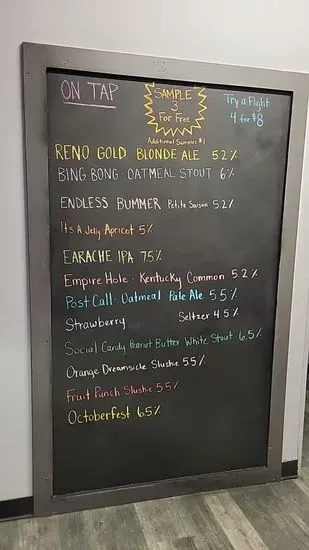 ON TAP
SAMPLE
3
For Free
Additional Samples $1
Try a Flight
4 for $8
RENO GOLD BLONDE ALE 5.2%
BING BONG - OATMEAL STOUT 6%
ENDLESS BUMMER Petite Saison 5.2%
It's A Jelly Apricot 5%
EARACHE IPA 7.5%
Empire Hole - Kentucky Common 5.2%
Post Call - Oatmeal Pale Ale 5.5%
Strawberry Seltzer 4.5%
Social Candy Peanut Butter White Stout 6.5%
Orange Dreamsicle Slushie 5.5%
Fruit Punch Slushie 5.5%
Octoberfest 6.5%